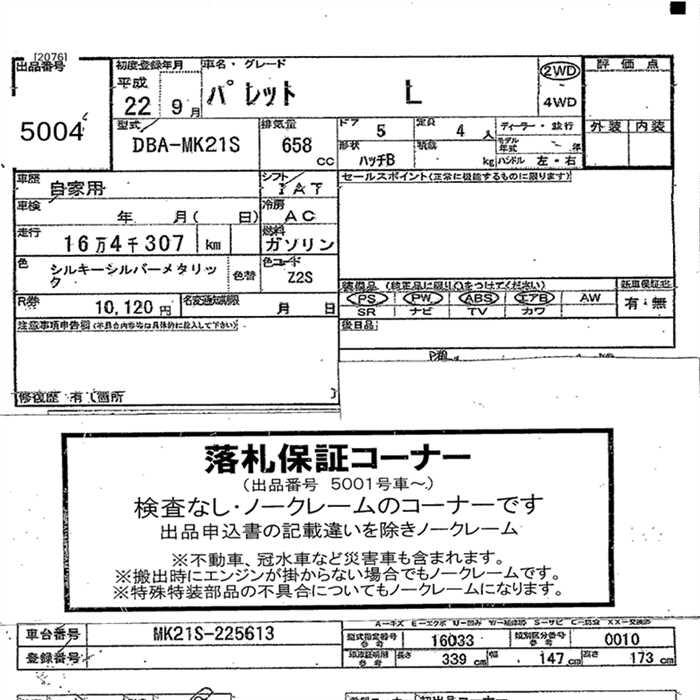 [2076]
出品番号
5004
初度登録年月
平成
22 9月
車名・グレード
パレット L
2WD
4WD
評価点
外装 内装
型式
DBA-MK21S
排気量
658 cc
ドア
5
定員
4 人
形状
ハッチB
積載
kg
ディーラー・並行
モデル年式 年
ハンドル 左・右
車歴
自家用
シフト
IAT
車検
年 月( 日)
冷房
AC
走行
16万4千307 km
燃料
ガソリン
色
シルキーシルバーメタリック
色替
色コード
Z2S
R券
10,120円
名変通知期限
月 日
セールスポイント(正常に機能するものに限ります)
装備品 (純正品に限り○をつけてください)
PS PW ABS エアB AW
SR ナビ TV カワ
新車保証書
有・無
後日品
注意事項申告欄(不具合内容等は具体的に記入して下さい)
修復歴 有(箇所 )
落札保証コーナー
(出品番号 5001号車～)
検査なし・ノークレームのコーナーです
出品申込書の記載違いを除きノークレーム
※不動車、冠水車など災害車も含まれます。
※搬出時にエンジンが掛からない場合でもノークレームです。
※特殊特装部品の不具合についてもノークレームになります。
車台番号
MK21S-225613
登録番号
型式指定番号 参考
16033
類別区分番号 参考
0010
長さ 339 cm 幅 147 cm 高さ 173 cm